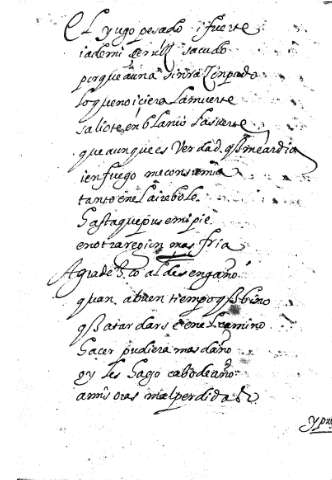 El yugo pesado i fuerte
ia de mi serviz sacudo
porque aun a sinrazon pudo
lo que no iciera la muerte
salio te en blanco la suerte
que aunque es verdad q̃ me ardia
i en fuego me consumia
tanto en el aire bole
Hasta que puse mi pie
en otra region mas fria
Agradezco al desengaño
quan a buen tiempo q̃ bino
q̃ a tardarse en el camino
Hacer pudiera mas daño
oy les hago cabo de año
a mis oras mal perdidas &
y pu